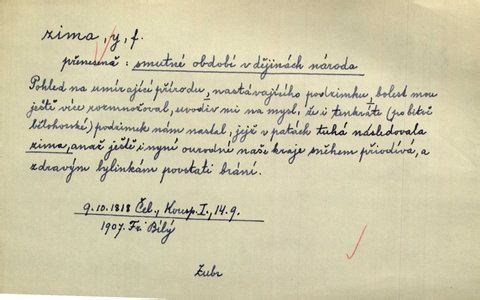 zima, y, f.
přeneseně: smutné období v dějinách národa
Pohled na umírající přírodu, nastávajícího podzimku, bolest mou
ještě více rozmnožoval, uvodiv mi na mysl, že i tenkráte (po bitvě
bělohorské) podzimek nám nastal, jejž v patách tuhá následovala
zima, anať ještě i nyní ourodné naše kraje sněhem přiodívá, a
zdravým bylinkám povstati brání.
9.10.1818 Čel., Koresp. I., 14.9.
1907. Fr. Bílý
Zubr